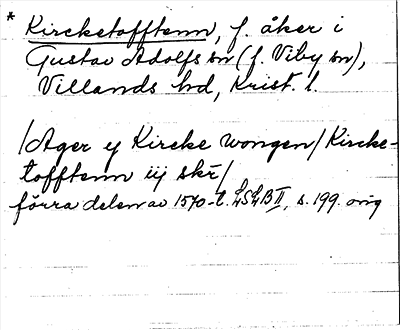 * Kircketofftenn, f. åker i
Gustav Adolfs sn (f. Viby sn),
Villands hd, Krist. l.
/Ager y Kircke wongen/Kircke-
tofftenn iij skr̄/
förra delen av 1570-t. LSLB II, s. 199. orig